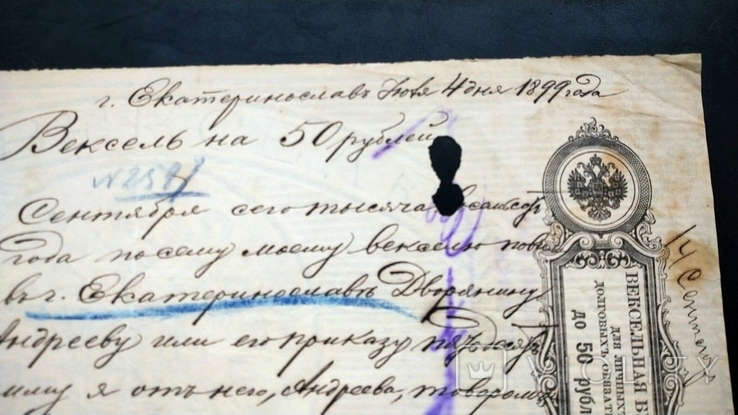 г. Екатеринославъ Іюля 4 дня 1899 года
Вексель на 50 рублей
Сентября сего тысяча
года по сему моему векселю
въ г. Екатеринославѣ Дворянину
Андрееву или его приказу
я отъ него, Андреева,
ВЕКСЕЛЬНАЯ Б
для личныхъ
долговыхъ обязат
до 50 рубл
14 Сентябр